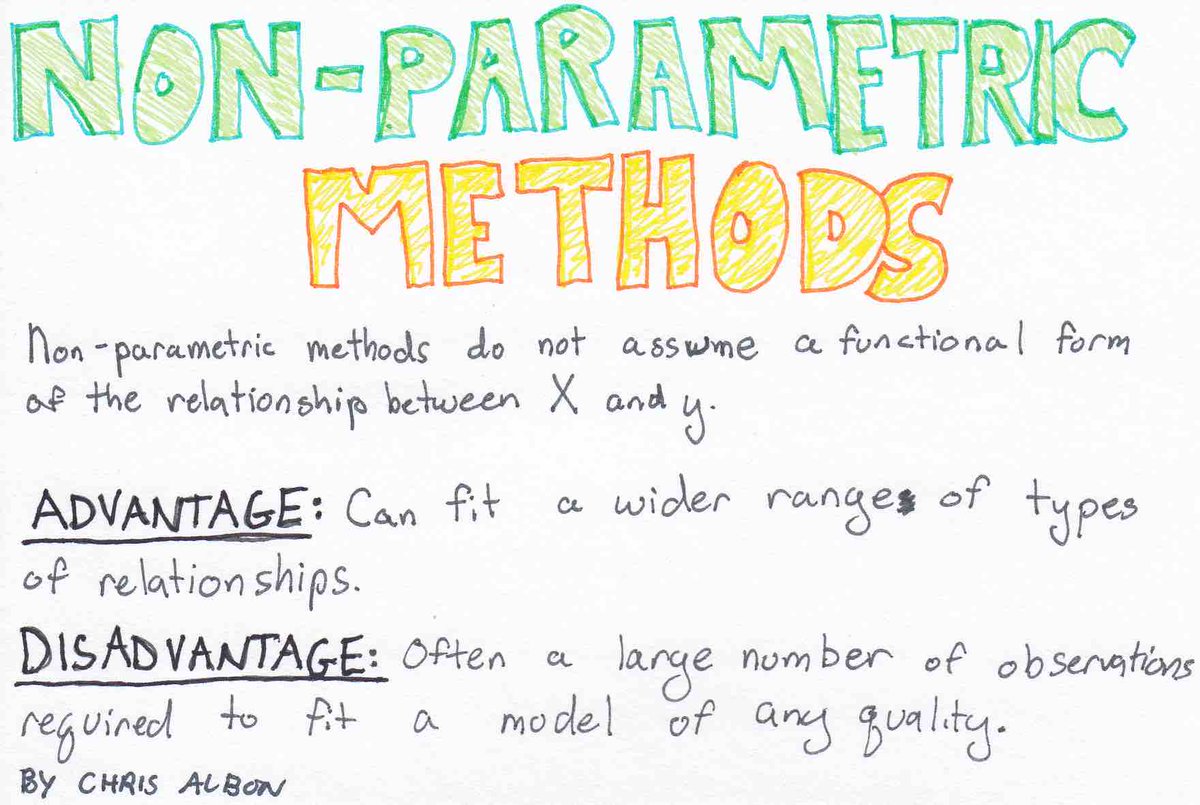 NON-PARAMETRIC
METHODS
Non-parametric methods do not assume a functional form
of the relationship between X and y.
ADVANTAGE: Can fit a wider ranges of types
of relationships.
DISADVANTAGE: Often a large number of observations
required to fit a model of any quality.
BY CHRIS ALBON